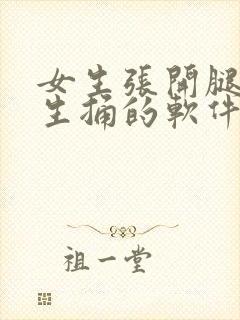 女生張開腿
生捅的軟件
祖一堂